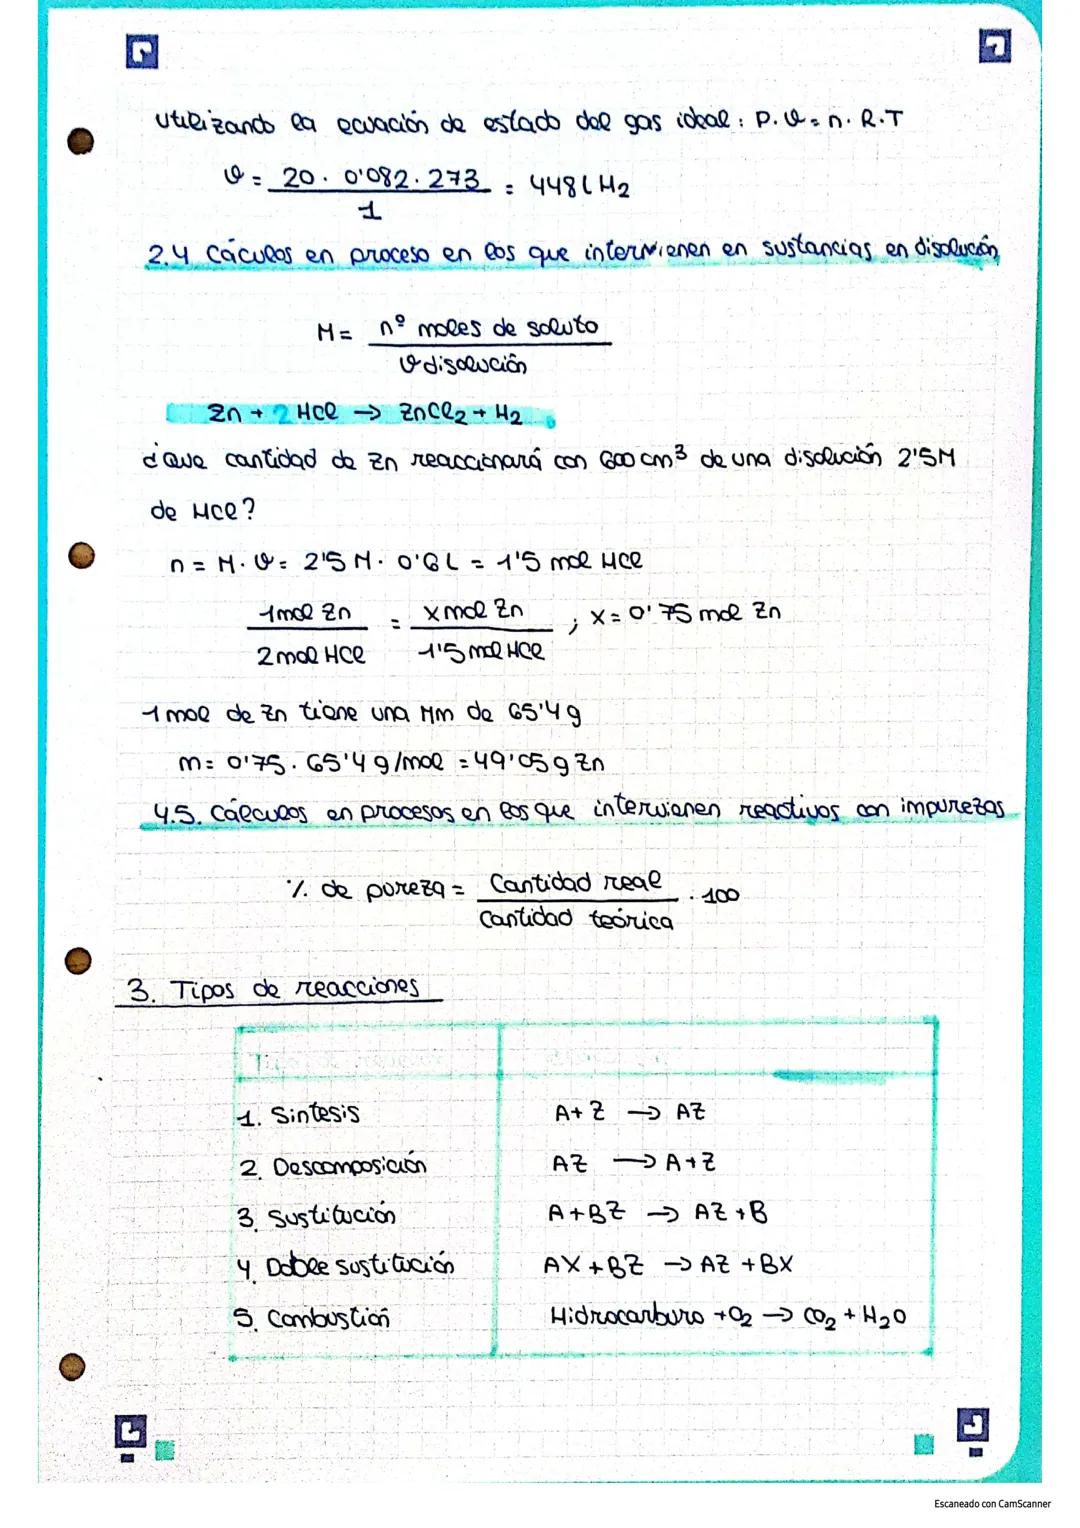 Utilizando la ecuación de estado del gas ideal: P.V = n. R.T
V = 20 . 0'082 . 273 / 1 = 448 L H2
2.4 Cáculos en proceso en los que intervienen en sustancias en disolución
M = nº moles de soluto / V disolución
Zn + 2 HCl → ZnCl2 + H2
¿Que cantidad de Zn reaccionará con 600 cm3 de una disolución 2'5M
de HCl?
n = M. V = 2'5 M. 0'6 L = 1'5 mol HCl
1 mol Zn / 2 mol HCl = x mol Zn / 1'5 mol HCl ; x = 0'75 mol Zn
1 mol de Zn tiene una Mm de 65'4 g
m = 0'75. 65'4 g/mol = 49'05 g Zn
4.5. Cálculos en procesos en los que intervienen reactivos con impurezas
% de pureza = Cantidad real / Cantidad teórica . 100
3. Tipos de reacciones
1. Sintesis A + Z → AZ
2. Descomposición AZ → A + Z
3. Sustitución A + BZ → AZ + B
4. Doble sustitución AX + BZ → AZ + BX
5. Combustión Hidrocarburo + O2 → CO2 + H2O
Escaneado con CamScanner